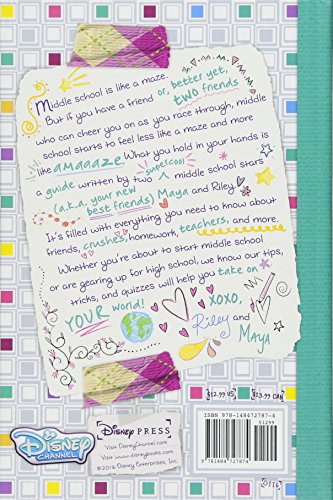 Middle school is like a maze.
But if you have a friend or, better yet,
TWO friends
who can cheer you on as you race through, middle
school starts to feel less like a maze and more
like amaaaze. What you hold in your hands is
a guide written by two supercool middle school stars
(a.k.a. your new
best friends) Maya and Riley.
It's filled with everything you need to know about
friends, crushes, homework, teachers, and more.
Whether you're about to start middle school
or are gearing up for high school, we know our tips,
tricks, and quizzes will help you take on
YOUR world!
XOXO,
Riley and
Maya
$12.99 US
$13.99 CAN
Disney
CHANNEL
Disney PRESS
Visit DisneyChannel.com
www.disneybooks.com
© 2016 Disney Enterprises, Inc.
ISBN 978-148472787-4
51299
9 781484 727874